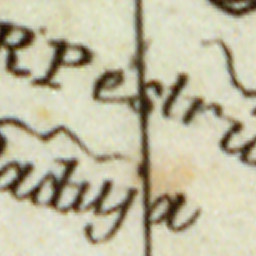 R. Pestrú
aduya